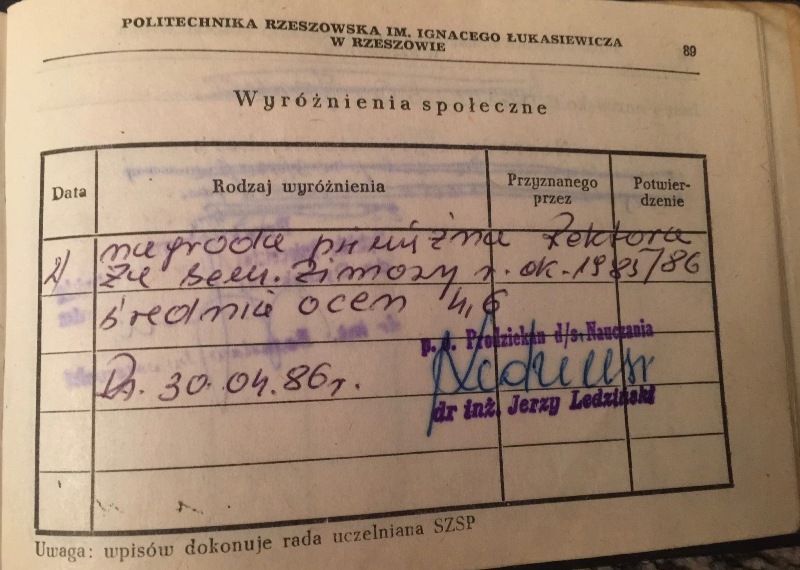 POLITECHNIKA RZESZOWSKA IM. IGNACEGO ŁUKASIEWICZA
W RZESZOWIE
89
Wyróżnienia społeczne
Data
Rodzaj wyróżnienia
Przyznanego przez
Potwier-
dzenie
2) nagroda pieniężna Rektora
za sem. zimowy r. ak. 1985/86
średnia ocen 4,6
p. o. Prodziekan d/s Nauczania
30.04.86r.
dr inż. Jerzy Ledziński
Uwaga: wpisów dokonuje rada uczelniana SZSP